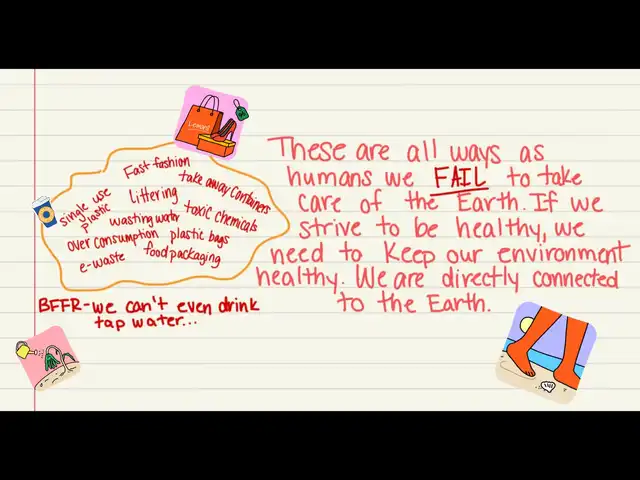 Fast fashion
take away containers
single use
plastic
littering
toxic chemicals
wasting water
over consumption
plastic bags
e-waste
food packaging
BFFR-we can't even drink
tap water...
These are all ways as
humans we FAIL to take
care of the Earth. If we
strive to be healthy, we
need to keep our environment
healthy. We are directly connected
to the Earth.